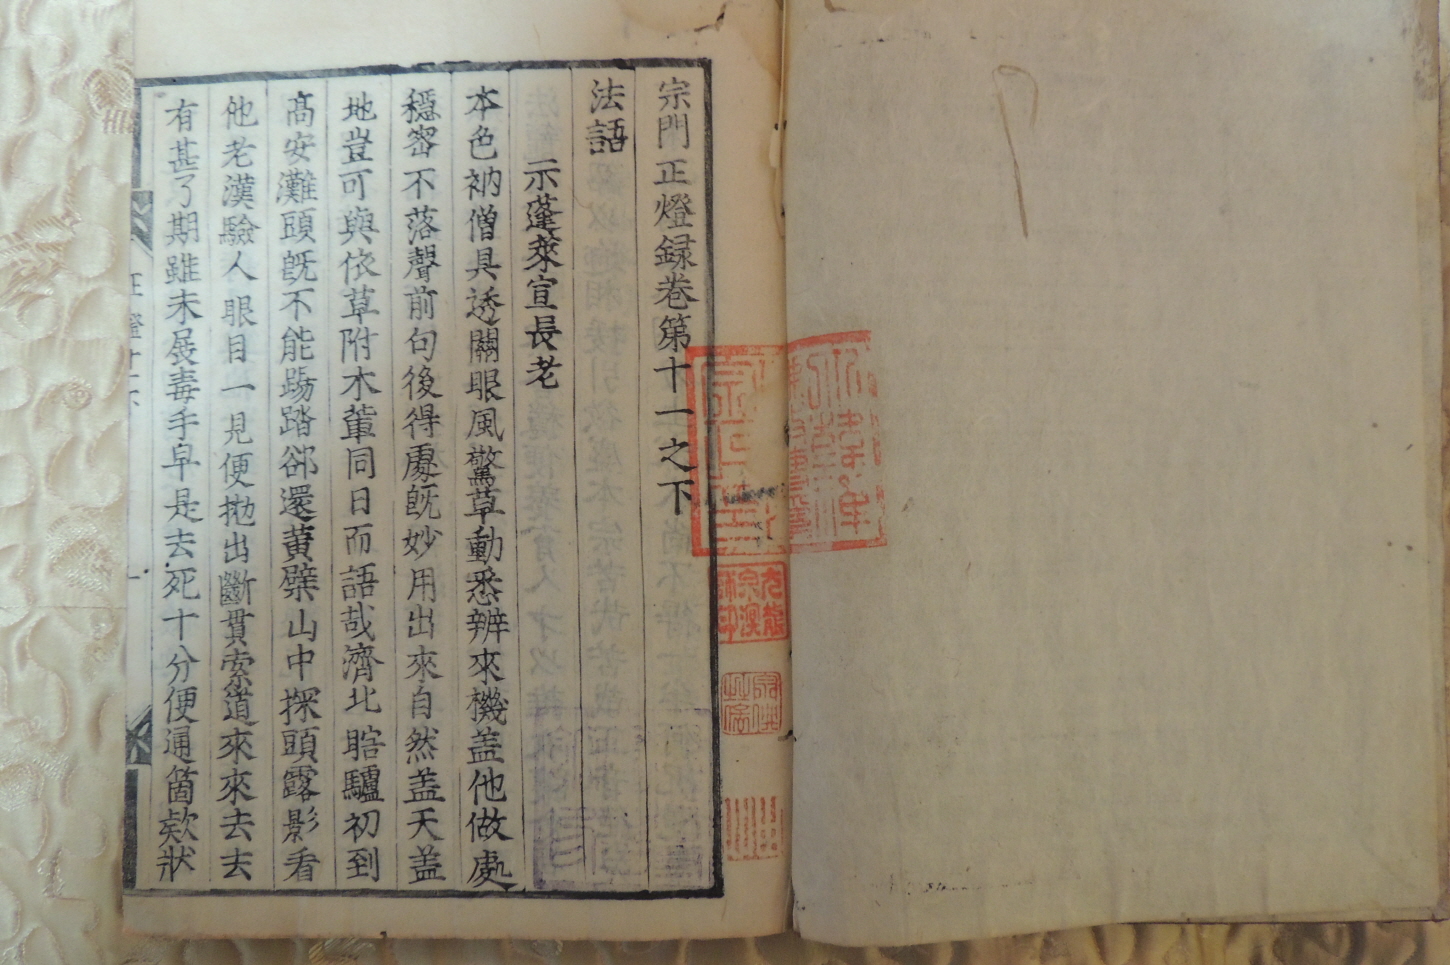 宗門正燈録巻第十一之下
法語
示蓬萊宣長老
本色衲僧具透關眼風驚草動悉辨來機盖他做處
穩密不落聲前句後得處既妙用出來自然盖天盖
地豈可與依草附木輩同日而語哉濟北瞎驢初到
高安灘頭既不能踢踏郤還黄檗山中探頭露影看
他老漢驗人眼目一見便拋出斷貫索道來來去去
有甚了期雖未展毒手早是去死十分便通箇欵狀
正燈十一下
一